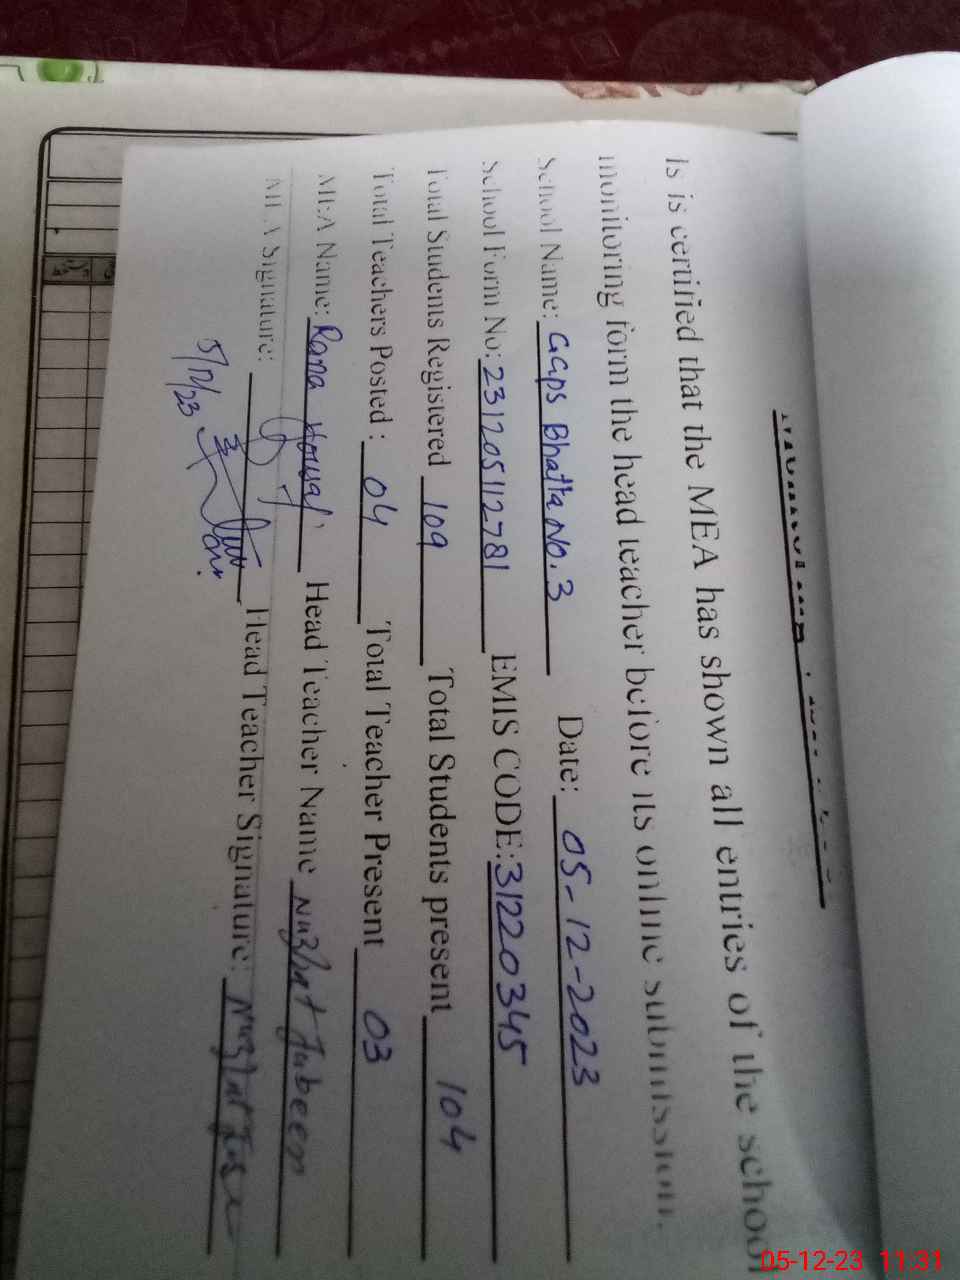 Is is certified that the MEA has shown all entries of the school
monitoring form the head teacher before its online submission.
School Name: GGPS Bhatta No.3 Date: 05-12-2023
School Form No: 231205112781 EMIS CODE: 31220345
Total Students Registered 109 Total Students present 104
Total Teachers Posted : 04 Total Teacher Present 03
MEA Name: Rana Head Teacher Name Nuzhat Jabeen
MEA Signature: Head Teacher Signature: Nuzhat
5/12/23
05-12-23 11:31